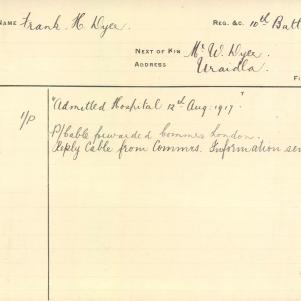 NAME Frank H. Dyer REG. &C. 10th Batt
NEXT OF KIN Mr W. Dyer
ADDRESS Uraidla
F
1/P "Admitted Hospital 12th Aug. 1917."
P/Cable forwarded Commrs London.
Reply Cable from Commrs. Information sen